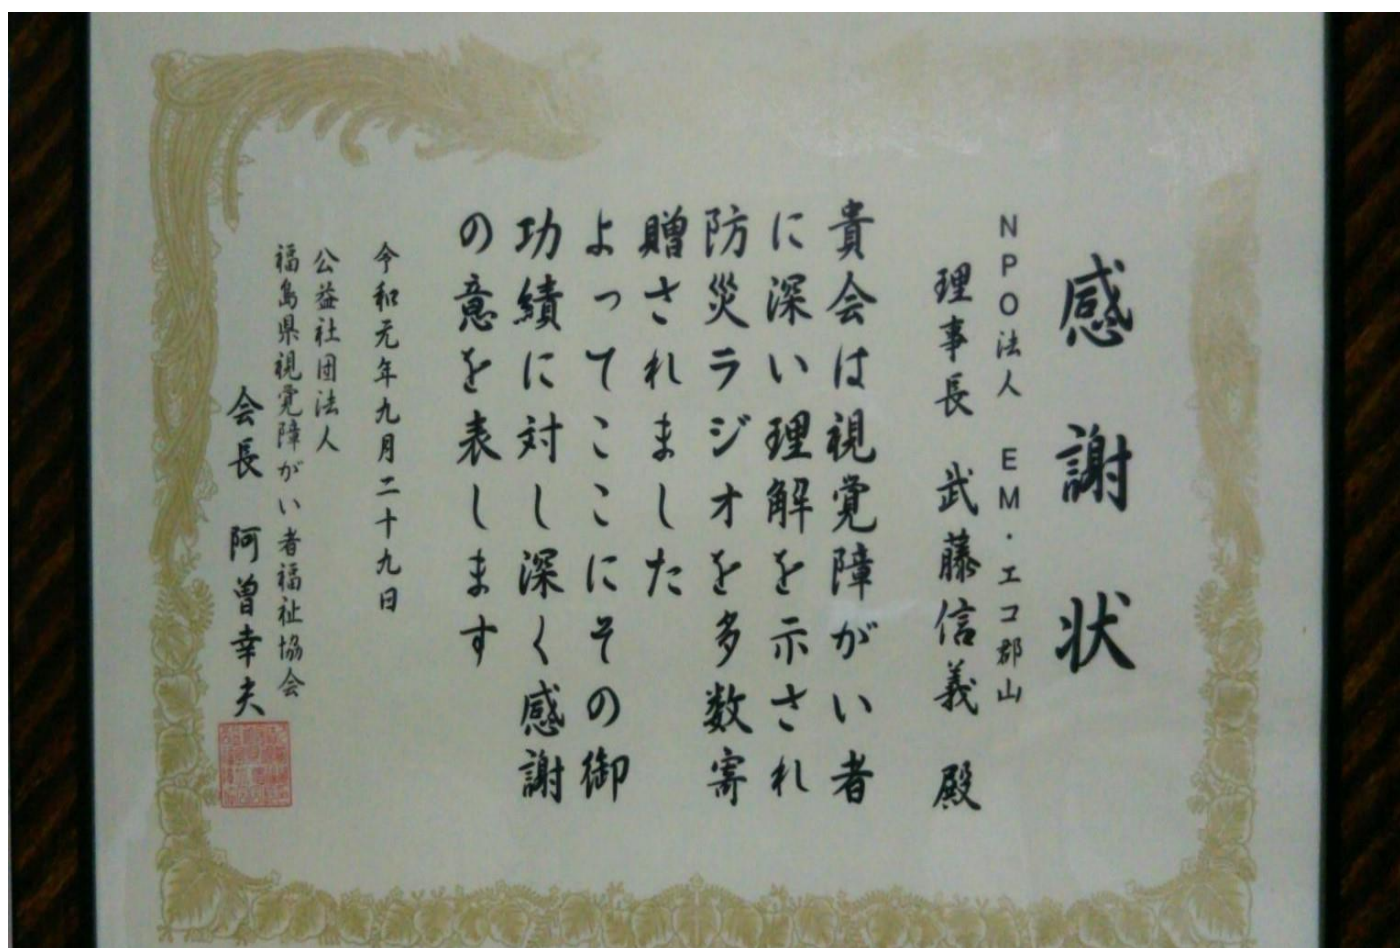 感謝状
NPO法人 EM・エコ郡山
理事長 武藤信義 殿
貴会は視覚障がい者
に深い理解を示され
防災ラジオを多数寄
贈されました
よってここにその御
功績に対し深く感謝
の意を表します
令和元年九月二十九日
公益社団法人
福島県視覚障がい者福祉協会
会長 阿曽幸夫